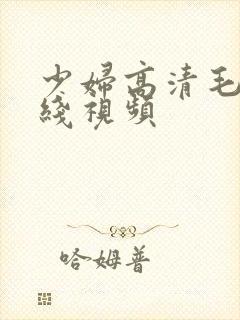 少婦高清毛
綫視頻
哈姆普